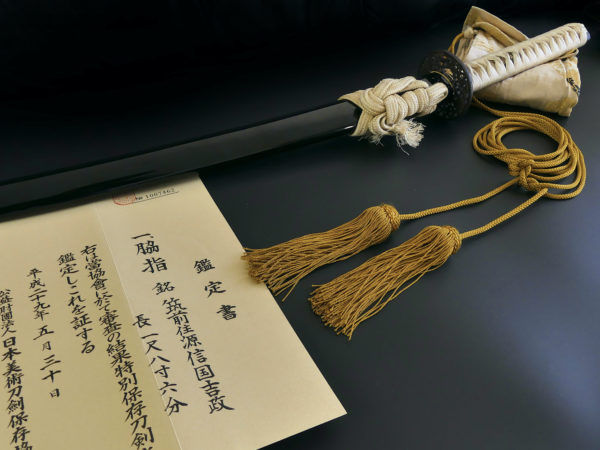 鑑定書
一、脇指 銘 筑前住源信国吉政
長一尺八寸六分
右は當協會に於て審査の結果特別保存刀剣
鑑定しこれを証する
平成二十九年五月三十日
公益財団法人日本美術刀剣保存協
№ 1007362